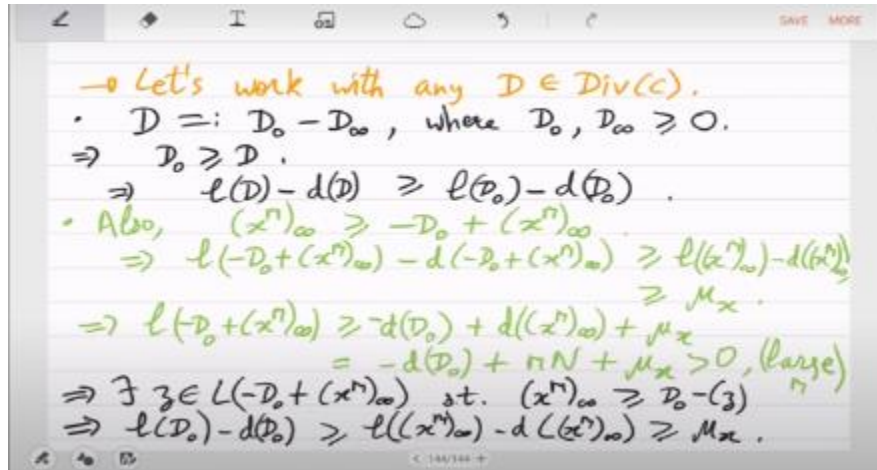 SAVE MORE
→ Let's work with any D ∈ Div(C).
· D =: D₀ - D∞, where D₀, D∞ ⩾ 0.
⇒ D₀ ⩾ D.
⇒ ℓ(D) - d(D) ⩾ ℓ(D₀) - d(D₀).
· Also, (xⁿ)∞ ⩾ -D₀ + (xⁿ)∞.
⇒ ℓ(-D₀+(xⁿ)∞) - d(-D₀+(xⁿ)∞) ⩾ ℓ((xⁿ)∞) - d((xⁿ)∞)
⩾ μₓ.
⇒ ℓ(-D₀+(xⁿ)∞) ⩾ -d(D₀) + d((xⁿ)∞) + μₓ
= -d(D₀) + nN + μₓ > 0, (large n)
⇒ ∃ z ∈ L(-D₀+(xⁿ)∞) st. (xⁿ)∞ ⩾ D₀-(z)
⇒ ℓ(D₀) - d(D₀) ⩾ ℓ((xⁿ)∞) - d((xⁿ)∞) ⩾ μₓ.
< 144/144 +